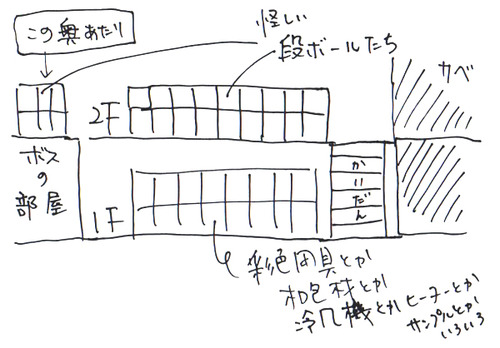 この奥あたり
怪しい
段ボールたち
カベ
2F
ボスの部屋
かいだん
1F
彩色用具とか
梱包材とか
冷几機とかヒーターとか
サンプルとか
いろいろ